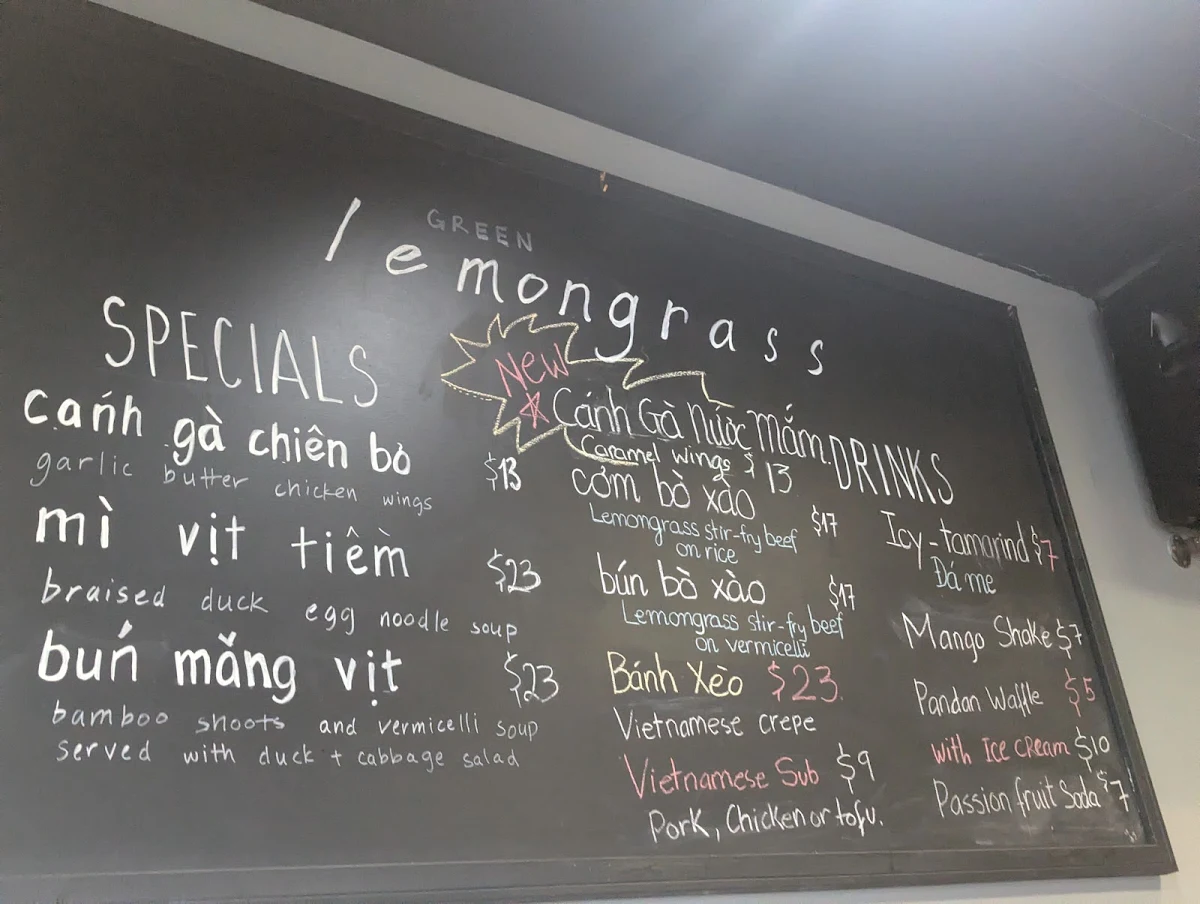 GREEN
lemongrass
SPECIALS
cańh gà chiên bỏ
$13
garlic butter chicken wings
mì vịt tiềm
$23
braised duck egg noodle soup
buń mǎng vịt
$23
bamboo shoots and vermicelli soup
served with duck + cabbage salad
New
Cánh Gà Nước Mắm
Caramel wings $13
cơm bò xào
$17
Lemongrass stir-fry beef
on rice
bún bò xào
$17
Lemongrass stir-fry beef
on vermicelli
Bánh Xèo $23.
Vietnamese crepe
Vietnamese Sub $9
Pork, Chicken or tofu.
DRINKS
Icy-tamarind $7
Đá me
Mango Shake $7
Pandan Waffle $5
with Ice cream $10
Passion fruit Soda $7